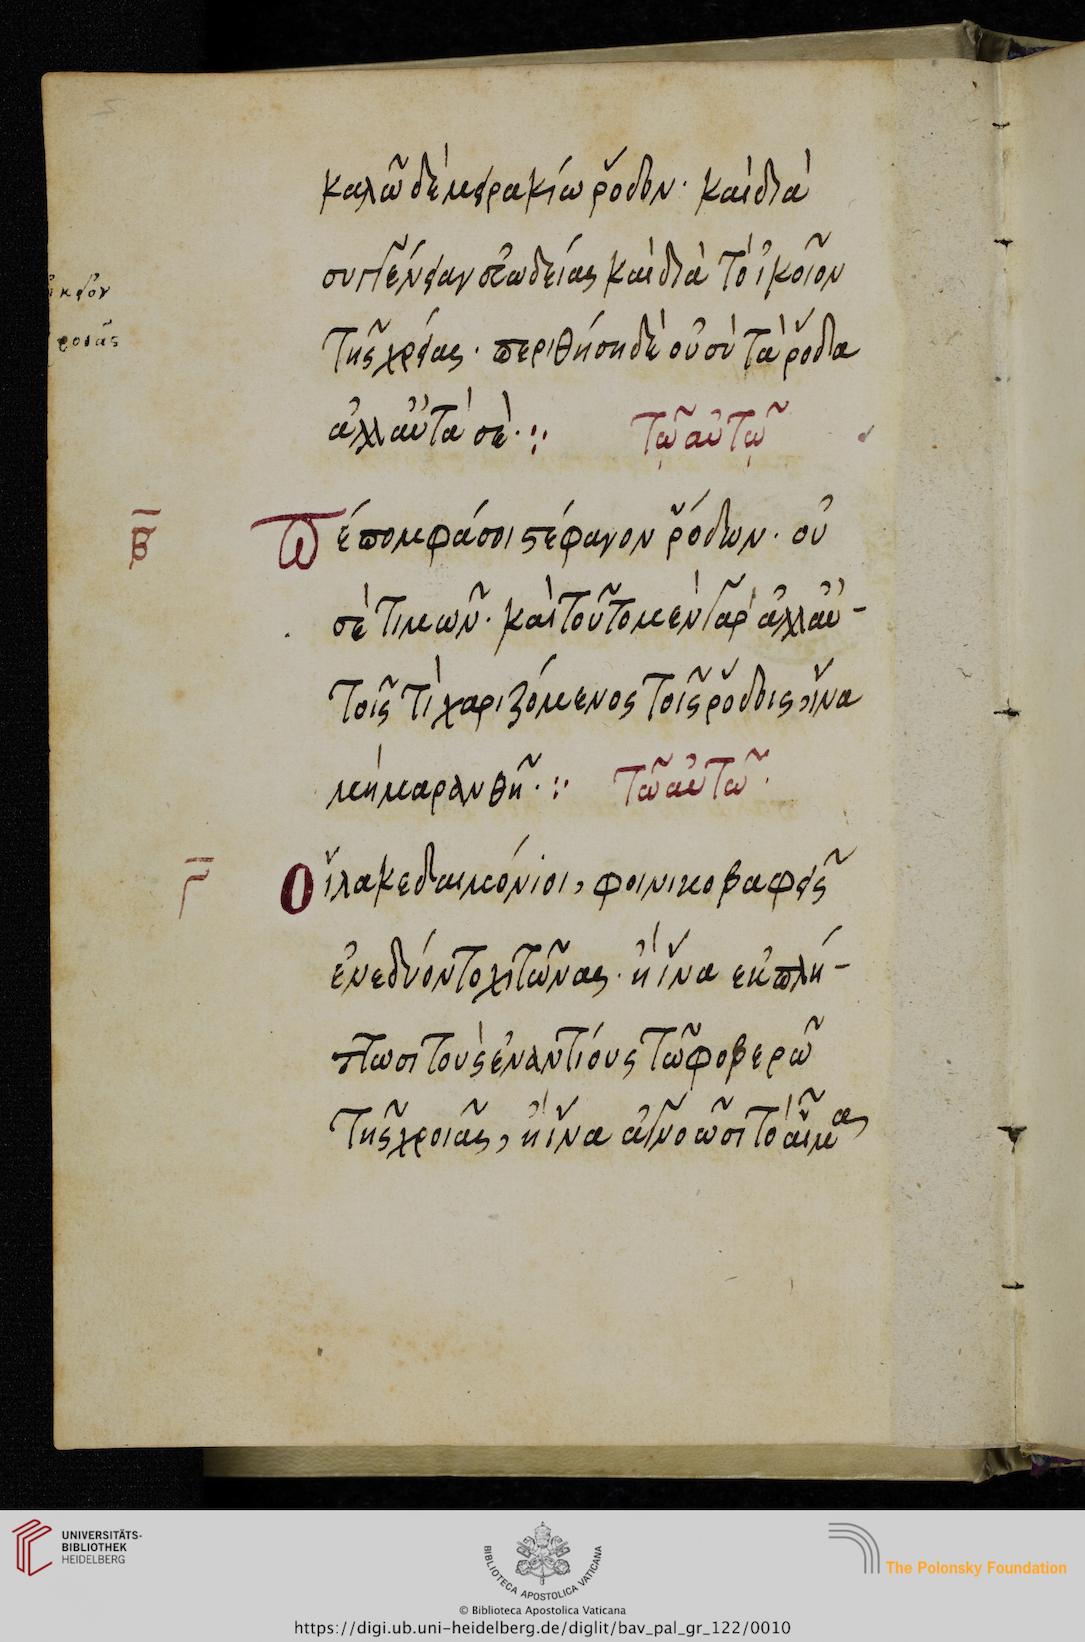 καλῶ δὲ μειρακίω ῥόδον· καὶ διὰ
συγγένειαν εὐωδείας καὶ διὰ τὸ ἴκοῖον
τῆς χρείας· περιθήση δὲ οὐ σὺ τὰ ῥόδα
ἀλλ αὐτὰ σὲ·:: τῷ αὐτῷ
ροιᾶς
β
Πέπομφά σοι στέφανον ῥόδων· οὐ
σὲ τιμῶν· καὶ τοῦτο μὲν γὰρ ἀλλ αὐ-
τοῖς τὶ χαριζόμενος τοῖς ῥόδοις, ἵνα
μὴ μαρανθῆ·:: τῶ αὐτῶ·
γ
Οἱ λακεδαιμόνιοι, φοινικοβαφεῖς
ἐνεδύοντο χιτῶνας· ἢ ἵνα εκπλή-
πτωσι τοὺς ἐναντίους τῶ φοβερῶ
τῆς χροιᾶς, ἢ ἵνα ἀγνοῶσι τὸ αἷμα
UNIVERSITÄTS-
BIBLIOTHEK
HEIDELBERG
BIBLIOTECA APOSTOLICA VATICANA
The Polonsky Foundation
© Biblioteca Apostolica Vaticana
https://digi.ub.uni-heidelberg.de/diglit/bav_pal_gr_122/0010